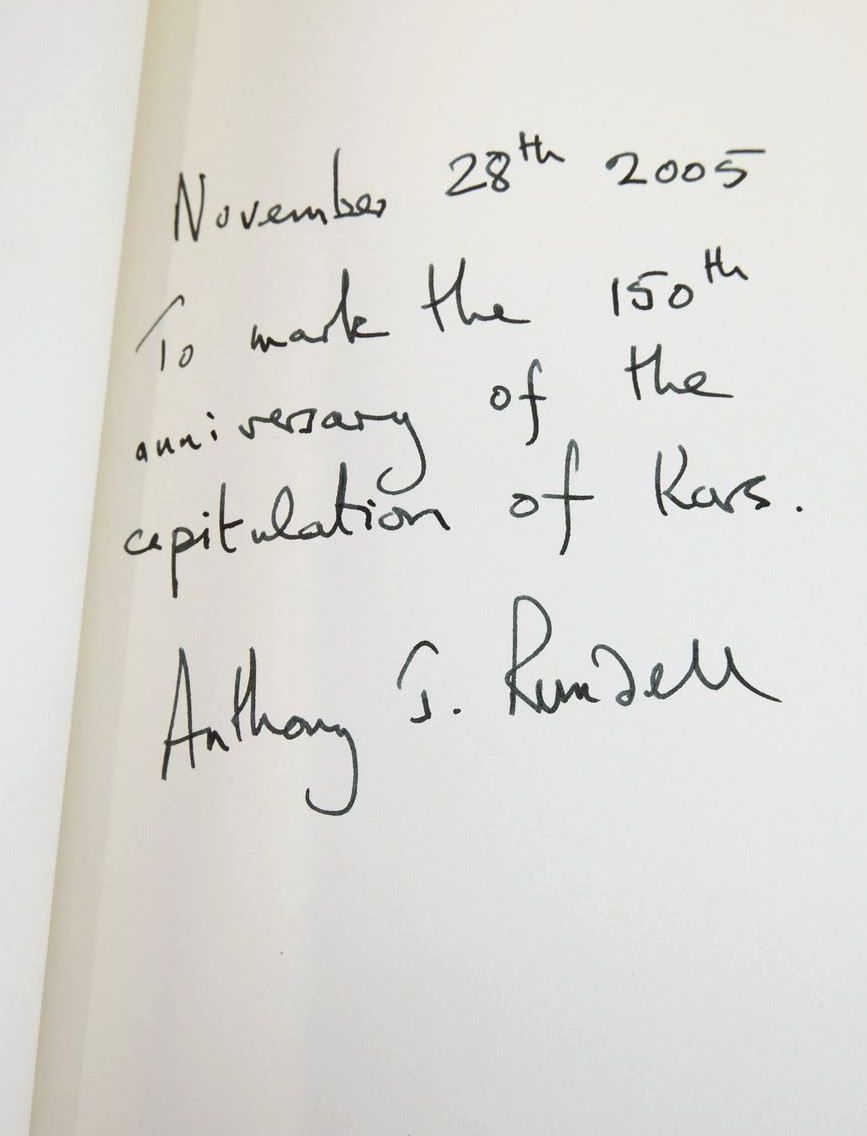 November 28th 2005
To mark the 150th
anniversary of the
capitulation of Kars.
Anthony J. Rundell